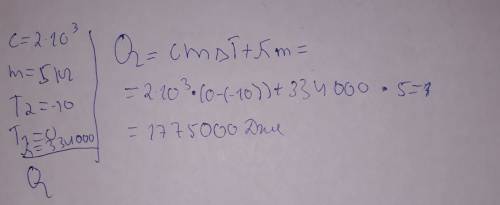 C=2·10³
m=5кг
T₂=-10
T₁=0
λ=334000
Q
Q = cmΔT+λm=
=2·10³·(0-(-10))+334000·5=
=1775000Дж